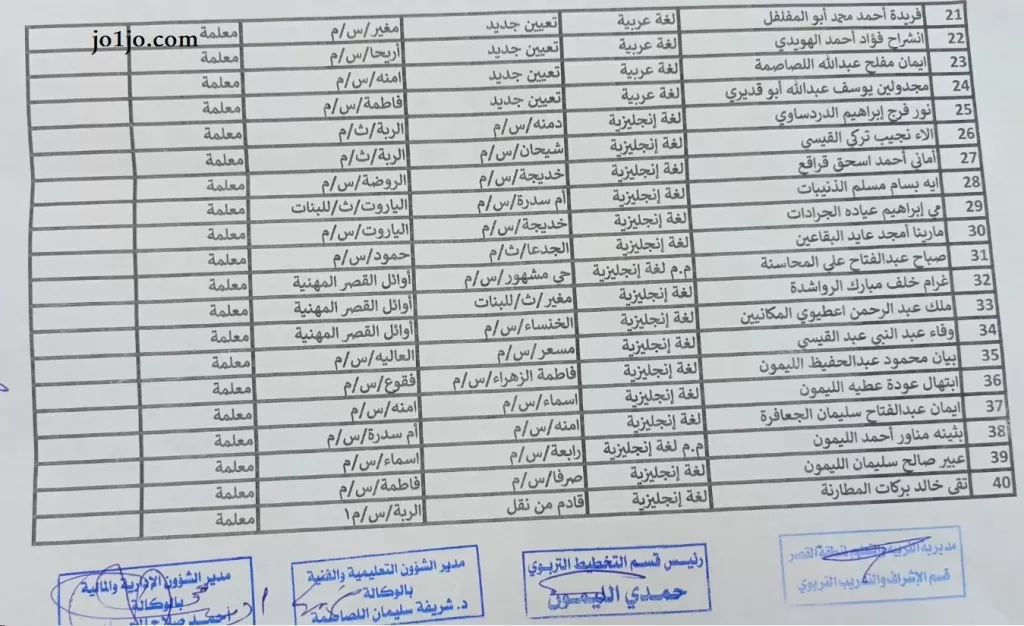 jo1jo.com
21 فريدة أحمد محمد أبو المفلفل لغة عربية تعيين جديد مغير/س/م معلمة
22 انشراح فؤاد أحمد الهويدي لغة عربية تعيين جديد أريحا/س/م معلمة
23 ايمان مفلح عبدالله اللصاصمة لغة عربية تعيين جديد امنه/س/م معلمة
24 مجدولين يوسف عبدالله أبو قديري لغة عربية تعيين جديد فاطمة/س/م معلمة
25 نور فرج إبراهيم الدردساوي لغة إنجليزية دمنه/س/م الربة/ث/م معلمة
26 الاء نجيب تركي القيسي لغة إنجليزية شيحان/س/م الربة/ث/م معلمة
27 أماني أحمد اسحق قراقع لغة إنجليزية خديجة/س/م الروضة/س/م معلمة
28 ايه بسام مسلم الذنيبات لغة إنجليزية أم سدرة/س/م الياروت/ث/للبنات معلمة
29 مي إبراهيم عياده الجرادات لغة إنجليزية خديجة/س/م الياروت/س/م معلمة
30 مارينا أمجد عايد البقاعين لغة إنجليزية الجدعا/ث/م حمود/س/م معلمة
31 صباح عبدالفتاح علي المحاسنة م.م لغة إنجليزية حي مشهور/س/م أوائل القصر المهنية معلمة
32 غرام خلف مبارك الرواشدة لغة إنجليزية مغير/ث/للبنات أوائل القصر المهنية معلمة
33 ملك عبد الرحمن اعطيوي المكانيين لغة إنجليزية الخنساء/س/م أوائل القصر المهنية معلمة
34 وفاء عبد النبي عبد القيسي لغة إنجليزية مسعر/س/م العاليه/س/م معلمة
35 بيان محمود عبدالحفيظ الليمون لغة إنجليزية فاطمة الزهراء/س/م فقوع/س/م معلمة
36 ابتهال عودة عطيه الليمون لغة إنجليزية اسماء/س/م امنه/س/م معلمة
37 ايمان عبدالفتاح سليمان الجعافرة لغة إنجليزية امنه/س/م أم سدرة/س/م معلمة
38 بثينه مناور أحمد الليمون م.م لغة إنجليزية رابعة/س/م اسماء/س/م معلمة
39 عبير صالح سليمان الليمون لغة إنجليزية صرفا/س/م فاطمة/س/م معلمة
40 تقى خالد بركات المطارنة لغة إنجليزية قادم من نقل الربة/س/م١ معلمة
مديرية التربية والتعليم لمنطقة القصر
قسم الإشراف والتدريب التربوي
رئيس قسم التخطيط التربوي
حمدي الليمون
مدير الشؤون التعليمية والفنية
بالوكالة
د. شريفة سليمان اللصاصمة
مدير الشؤون الإدارية والمالية
بالوكالة
احمد صلاح